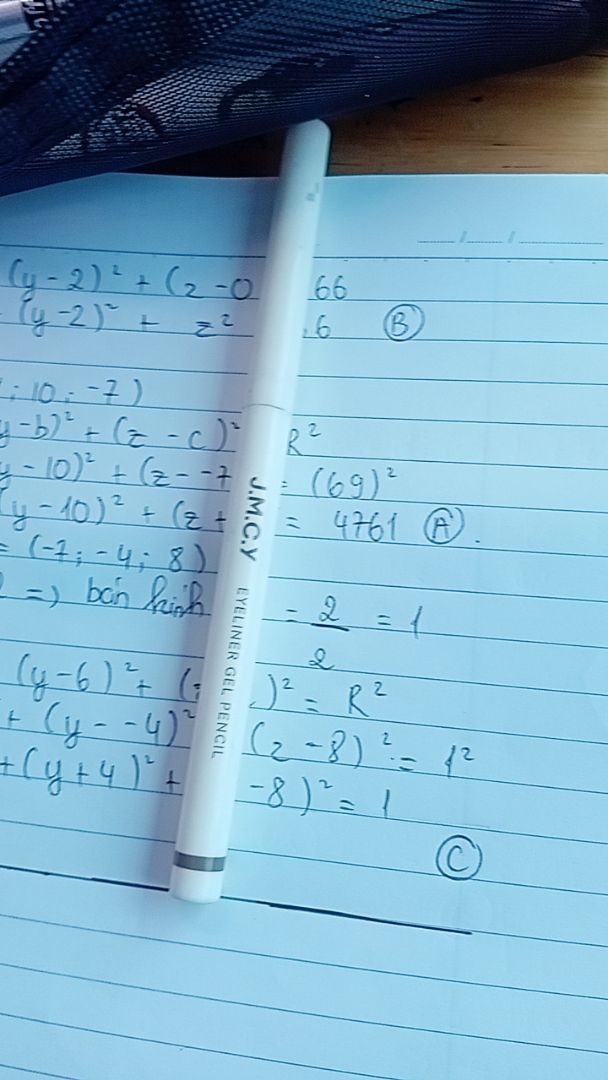 (y-2)² + (z-0 66
(y-2)² + z² .6 Ⓑ
; 10; -7)
y-b)² + (z-c)² R²
y-10)² + (z--7 = (69)²
(y-10)² + (z+ = 4761 Ⓐ.
= (-7; -4; 8)
=) bán kính = 2/2 = 1
(y-6)² + ( )² = R²
+ (y--4)² (z-8)² = 1²
+(y+4)² + -8)² = 1
Ⓒ
J.M.C.Y EYELINER GEL PENCIL